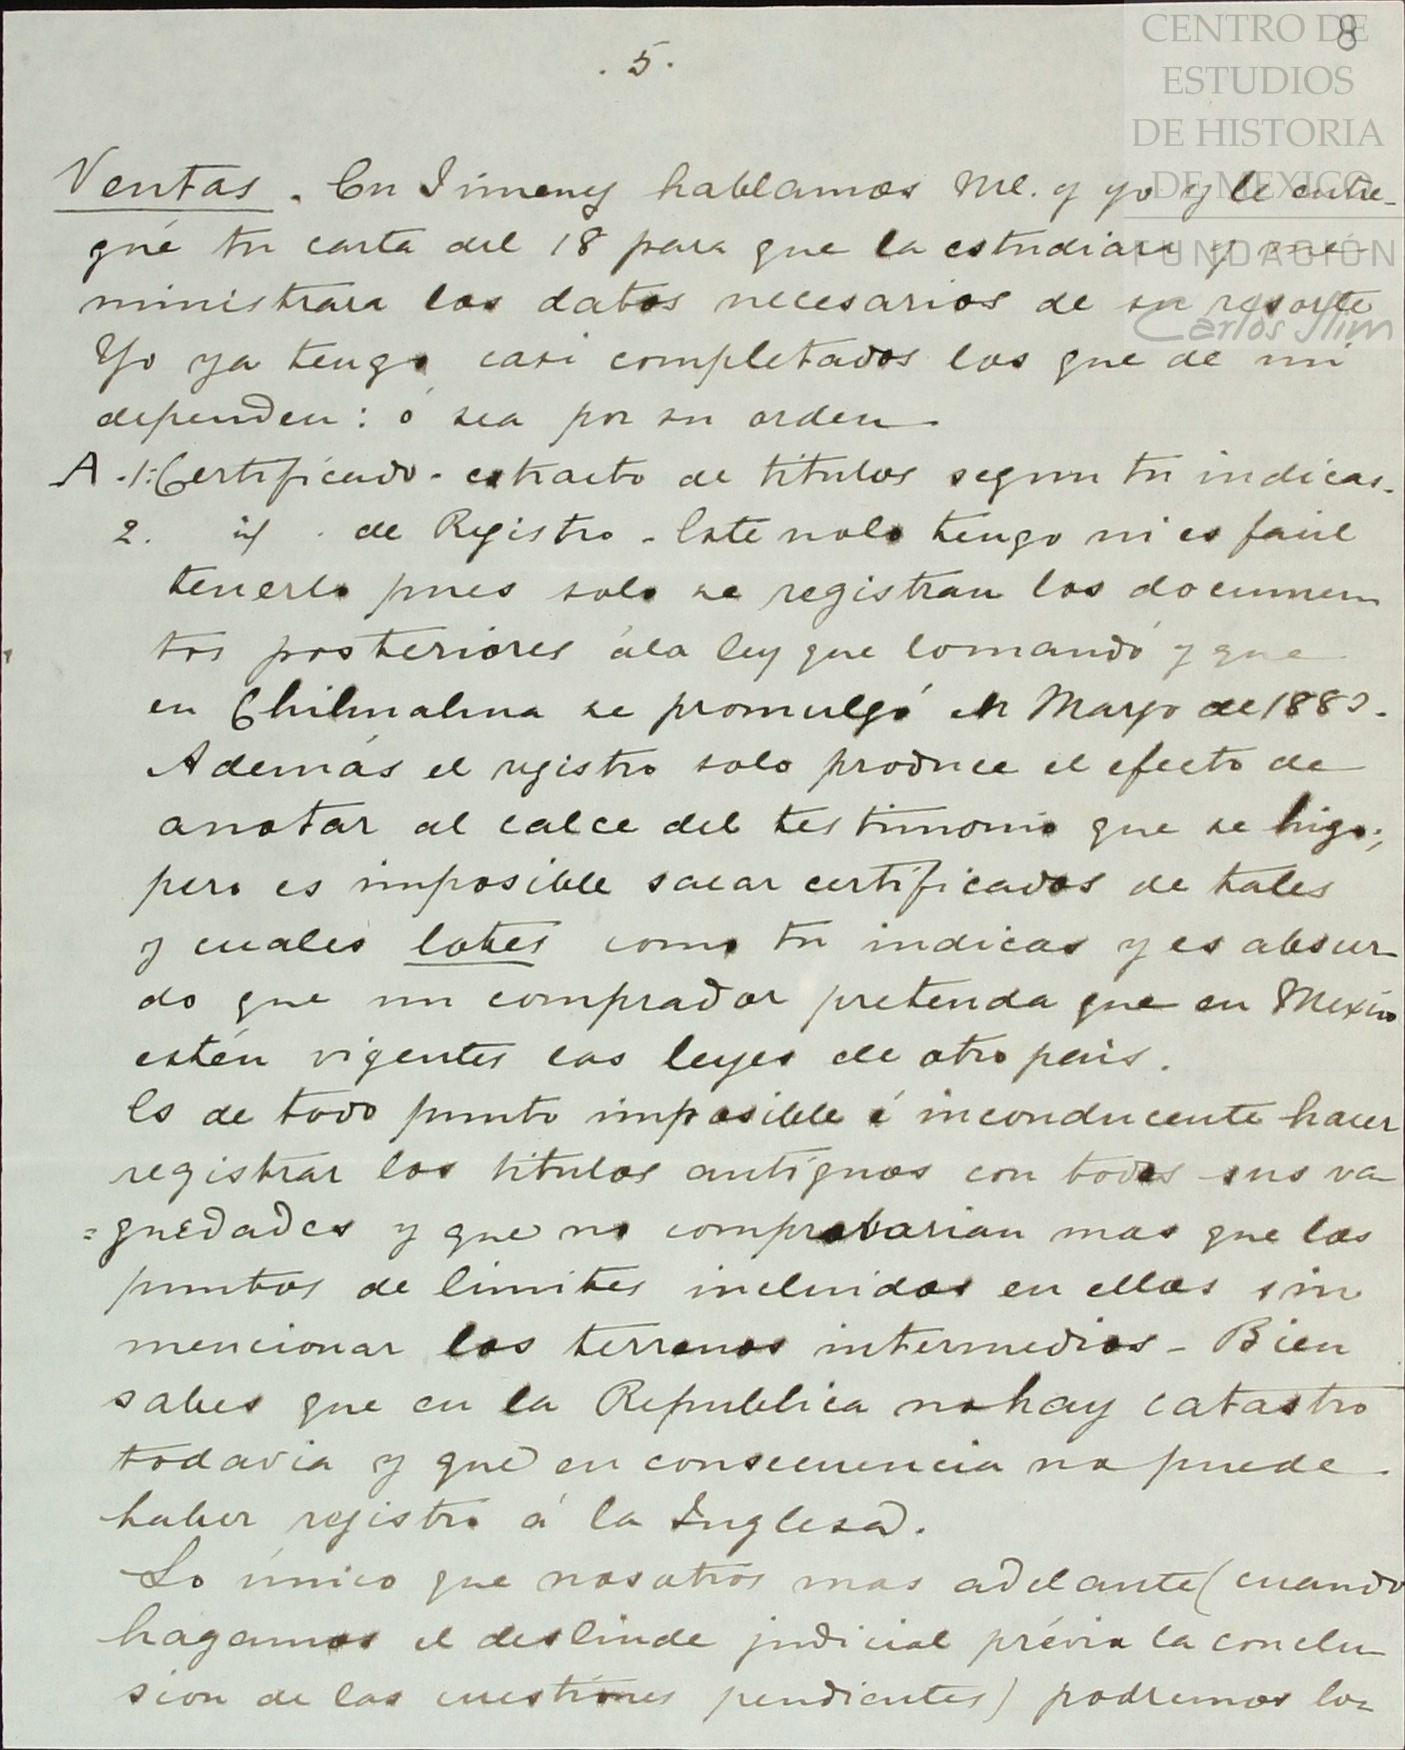 8
. 5 .
CENTRO DE
ESTUDIOS
DE HISTORIA
DE MEXICO
FUNDACIÓN
Carlos Slim
Ventas . En Jimenez hablamos Ml. y yo y le entre-
gué tu carta del 18 para que la estudiara y me
ministrara los datos necesarios de su resorte
Yo ya tengo casi completados los que de mi
dependen : ó sea por su orden
A - 1: Certificado - extracto de titulos segun tu indicas.
2. id . de Registro - Este nolo tengo ni es facil
tenerlo pues solo se registran los documen
tos posteriores ála ley que lo mandó y que
en Chihuahua se promulgó en Marzo de 188
Además el registro solo produce el efecto de
anotar al calce del testimonio que se hizo ;
pero es imposible sacar certificados de tales
y cuales lotes como tu indicas y es absur
do que un comprador pretenda que en Mexico
estén vigentes las leyes de otro pais .
Es de todo punto imposible é inconducente hacer
registrar los titulos antiguos con todos sus va
=guedades y que no comprobarian mas que los
puntos de limites incluidos en ellos sin
mencionar los terrenos intermedios - Bien
sabes que en la Republica no hay catastro
todavia y que en consecuencia no puede
haber registro á la Inglesa .
Lo único que nosotros mas adelante ( cuando
hagamos el deslinde judicial prévia la conclu
sion de las cuestiones pendientes ) podremos lo=